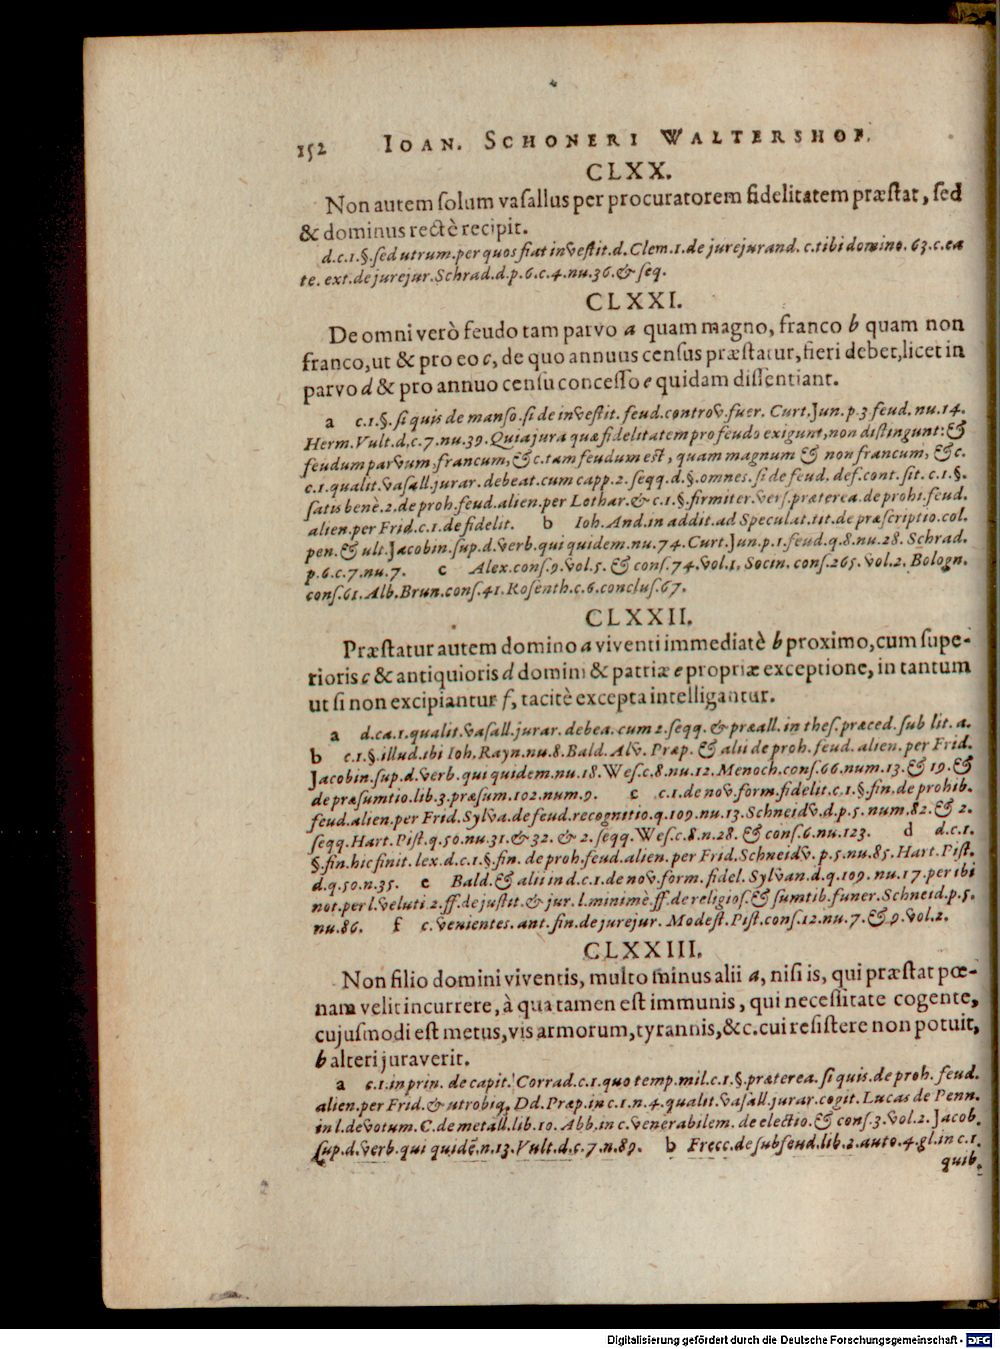 152 IOAN. SCHONERI WALTERSHOF.
CLXX.
Non autem ſolum vaſallus per procuratorem fidelitatem præſtat, ſed
& dominus rectè recipit.
d.c.1.§.ſed utrum.per quos fiat inveſtit.d.Clem.1.de jurejurand. c.tibi domino. 63.c.ea
te. ext.de jurejur.Schrad.d.p.6.c.4.nu.36.& ſeq.
CLXXI.
De omni verò feudo tam parvo a quam magno, franco b quam non
franco,ut & pro eo c, de quo annuus cenſus præſtatur,fieri debet,licet in
parvo d & pro annuo cenſu conceſſo e quidam diſſentiant.
a c.1.§. ſi quis de manſo.ſi de inveſtit. feud.controv.fuer. Curt.Jun.p.3.feud. nu.14.
Herm.Vult.d.c.7.nu.39.Quia jura quæ fidelitatem pro feudo exigunt,non diſtingunt:&
feudum parvum,francum,&c.tam feudum eſt, quam magnum & non francum, &c.
c.1.qualit.vaſall.jurar.debeat.cum capp.2.ſeqq.d.§.omnes.ſi de feud. def.cont.ſit.c.1.§.
ſatis benè.2.de proh.feud.alien.per Lothar.& c.1.§.firmiter.verſ.præterea.de prohi.feud.
alien.per Frid.c.1.de fidelit. b Ioh.And.in addit.ad Speculat.tit.de præſcriptio.col.
pen.& ult.Jacobin.ſup.d.verb.qui quidem.nu.74.Curt.Jun.p.1.feud.q.8.nu.28. Schrad.
p.6.c.7.nu.7. c Alex.conſ.9.vol.5. & conſ.74.vol.1. Socin. conſ.265. vol.2. Bologn.
conſ.61.Alb.Brun.conſ.41.Roſenth.c.6.concluſ.67.
CLXXII.
Præſtatur autem domino a viventi immediatè b proximo,cum ſupe-
rioris c & antiquioris d domini & patriæ e propriæ exceptione, in tantum
ut ſi non excipiantur f, tacitè excepta intelligantur.
a d.ca.1.qualit.vaſall.jurar. debea.cum 2.ſeqq. & præall. in theſ.præced.ſub lit. a.
b c.1.§.illud.ibi Ioh.Rayn.nu.8.Bald. Alv. Præp. & alii de proh. feud. alien. per Frid.
Jacobin.ſup.d.verb. qui quidem.nu.18.Weſ.c.8.nu.12.Menoch.conſ.66.num.13.& 19.&
de præſumtio.lib.3.præſum.102.num.9. c c.1.de nov.form.fidelit.c.1.§.fin.de prohib.
feud.alien.per Frid.Sylva.de feud.recognitio.q.109.nu.13.Schneidv.d.p.5.num.82.& 2.
ſeqq.Hart.Piſt.q.50.nu.31.& 32. & 2.ſeqq.Weſ.c.8.n.28. & conſ.6.nu.123. d d.c.1.
§.fin.hic finit. lex.d.c.1.§.fin. de proh.feud.alien.per Frid.Schneidv. p.5.nu.85.Hart.Piſt.
d.q.50.n.35. e Bald.& alii in d.c.1.de nov.form. fidel. Sylvan.d.q.109.nu.17.per ibi
not.per l.veluti.2.ff.de juſtit.& jur. l.minimè.ff.de religioſ.& ſumtib.funer.Schneid.p.5.
nu.86. f c.venientes.ant.fin.de jurejur. Modeſt.Piſt.conſ.12.nu.7.& 9.vol.2.
CLXXIII.
Non filio domini viventis, multo minus alii a, niſi is, qui præſtat pœ-
nam velit incurrere, à qua tamen eſt immunis, qui neceſſitate cogente,
cujuſmodi eſt metus,vis armorum,tyrannis,&c.cui reſiſtere non potuit,
b alteri juraverit.
a c.1.in prin. de capit. Corrad.c.1.quo temp.mil.c.1.§.præterea.ſi quis.de proh. feud.
alien.per Frid.& utrobiq. Dd.Præp.in c.1.n.4.qualit.vaſall.jurar.cogit. Lucas de Penn.
in l.devotum.C.de metall.lib.10. Abb.in c.venerabilem. de electio.& conſ.3.vol.2.Jacob.
ſup.d.verb.qui quidē.n.13.Vult.d.c.7.n.89. b Frecc.de ſubfeud.lib.2.auto.4.gl.in c.1.
quib.
Digitalisierung gefördert durch die Deutsche Forschungsgemeinschaft - DFG